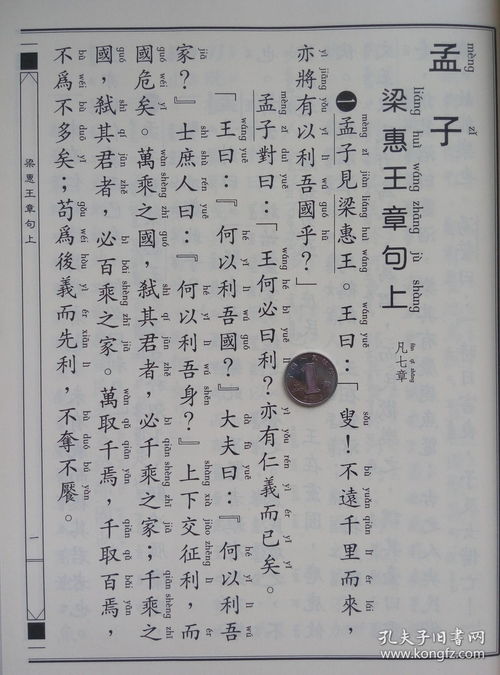 孟子
梁惠王章句上 凡七章
一孟子見梁惠王。王曰：「叟！不遠千里而來，
亦將有以利吾國乎？」
孟子對曰：「王何必曰利？亦有仁義而已矣。
「王曰：『何以利吾國？』大夫曰：『何以利吾
家？』士庶人曰：『何以利吾身？』上下交征利，而
國危矣。萬乘之國，弒其君者，必千乘之家；千乘之
國，弒其君者，必百乘之家。萬取千焉，千取百焉，
不爲不多矣；苟爲後義而先利，不奪不饜。
梁惠王章句上
一
1
孔夫子旧书网